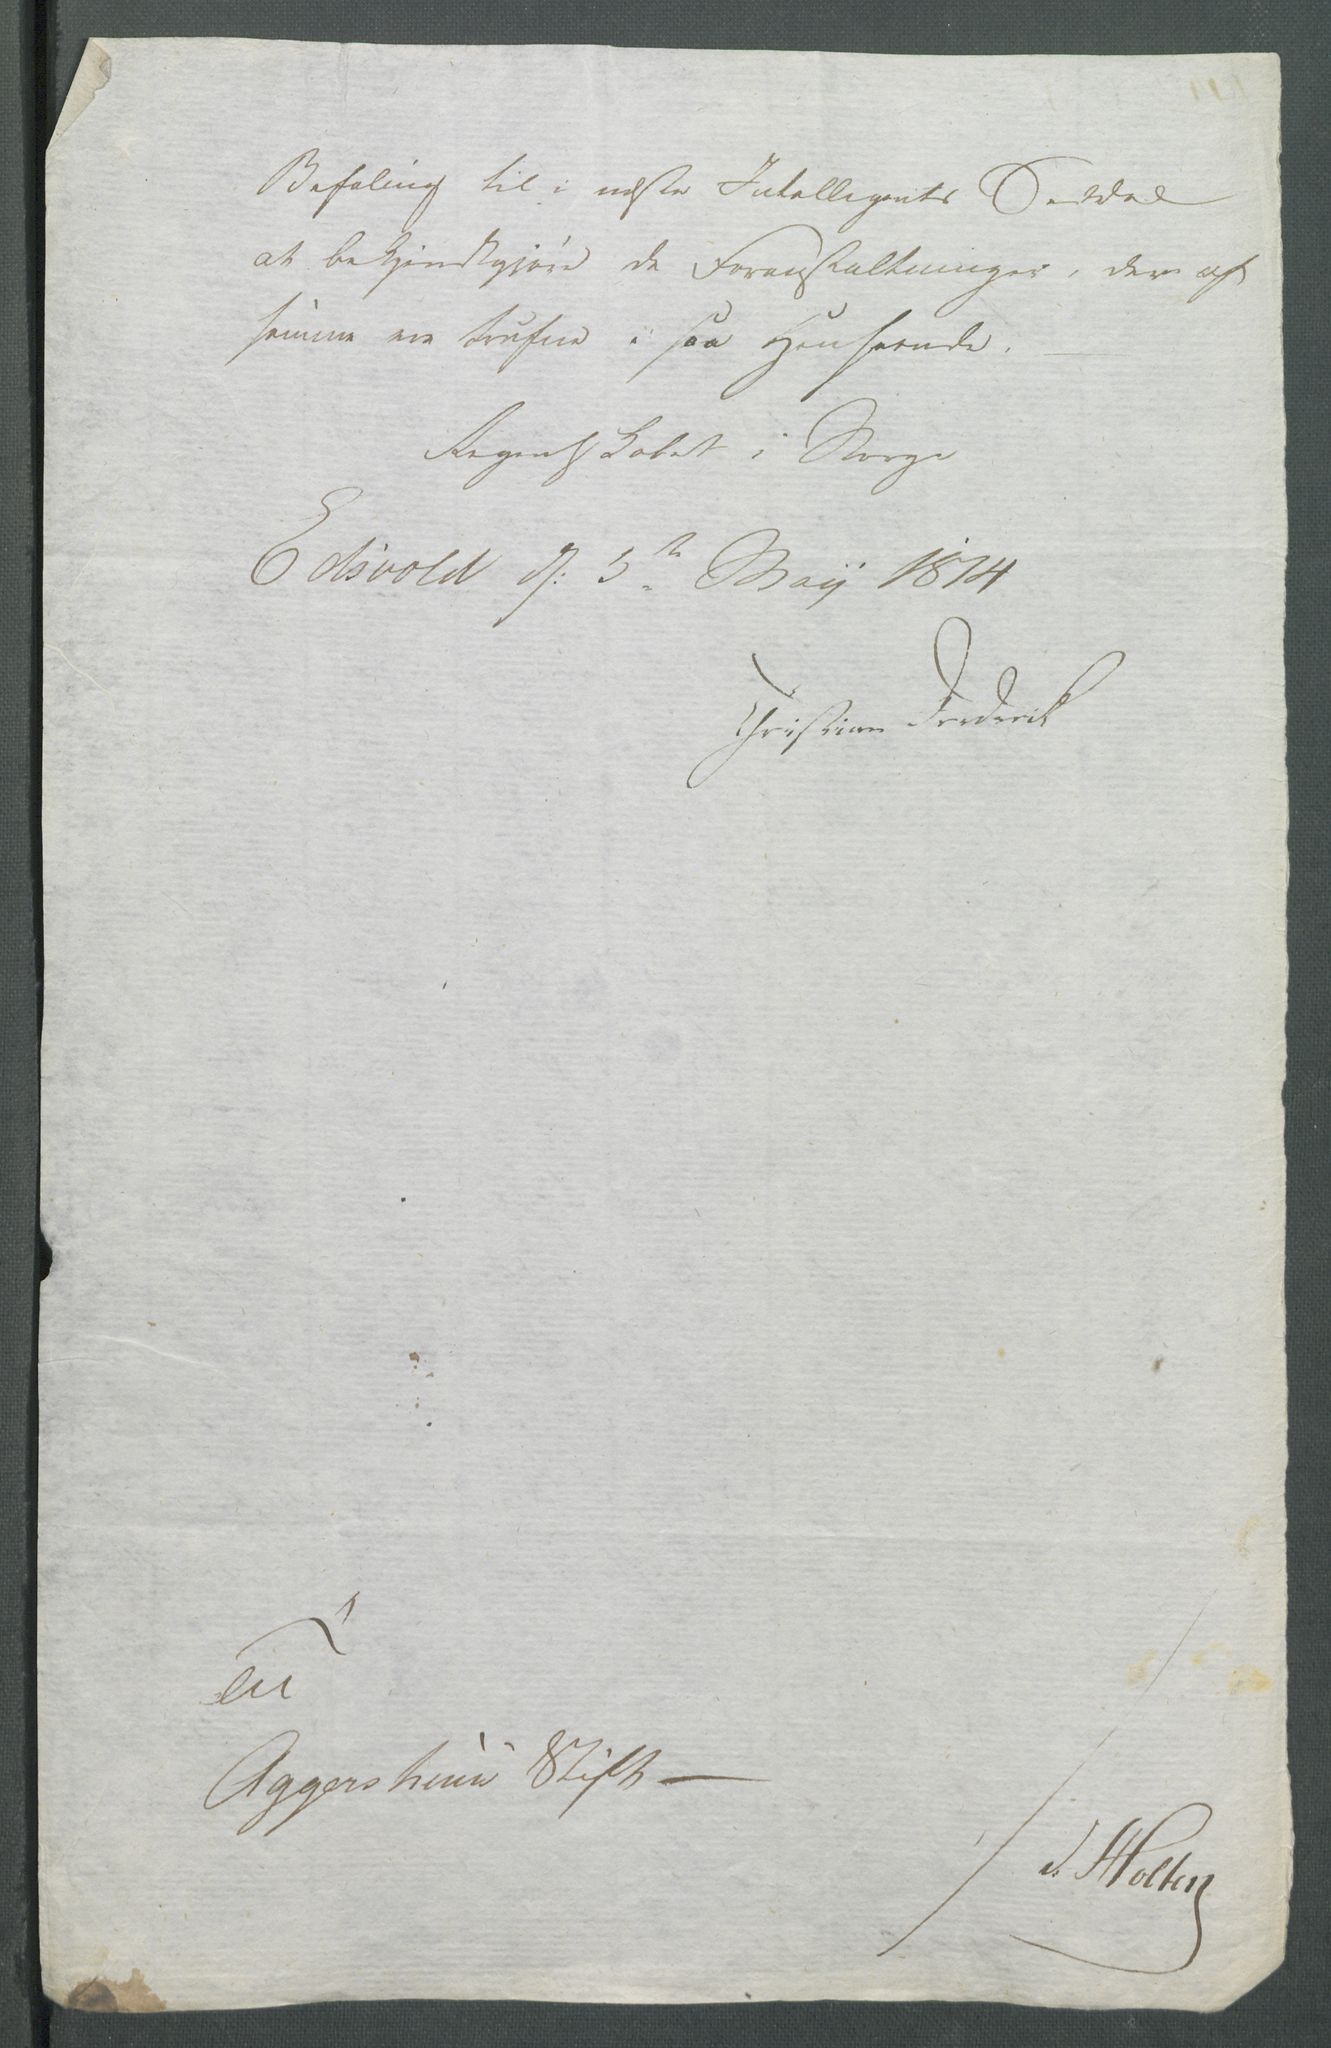 Befaling til i næste Intelligents Seddel
at bekjendtgjöre de Foranstaltninger, der af
samme ere trufne i saa Henseende.
Regentskabet i Norge
Edsvold d: 5te Maij 1814
Christian Frederik
Til
Aggershuus Stift
v. Holten